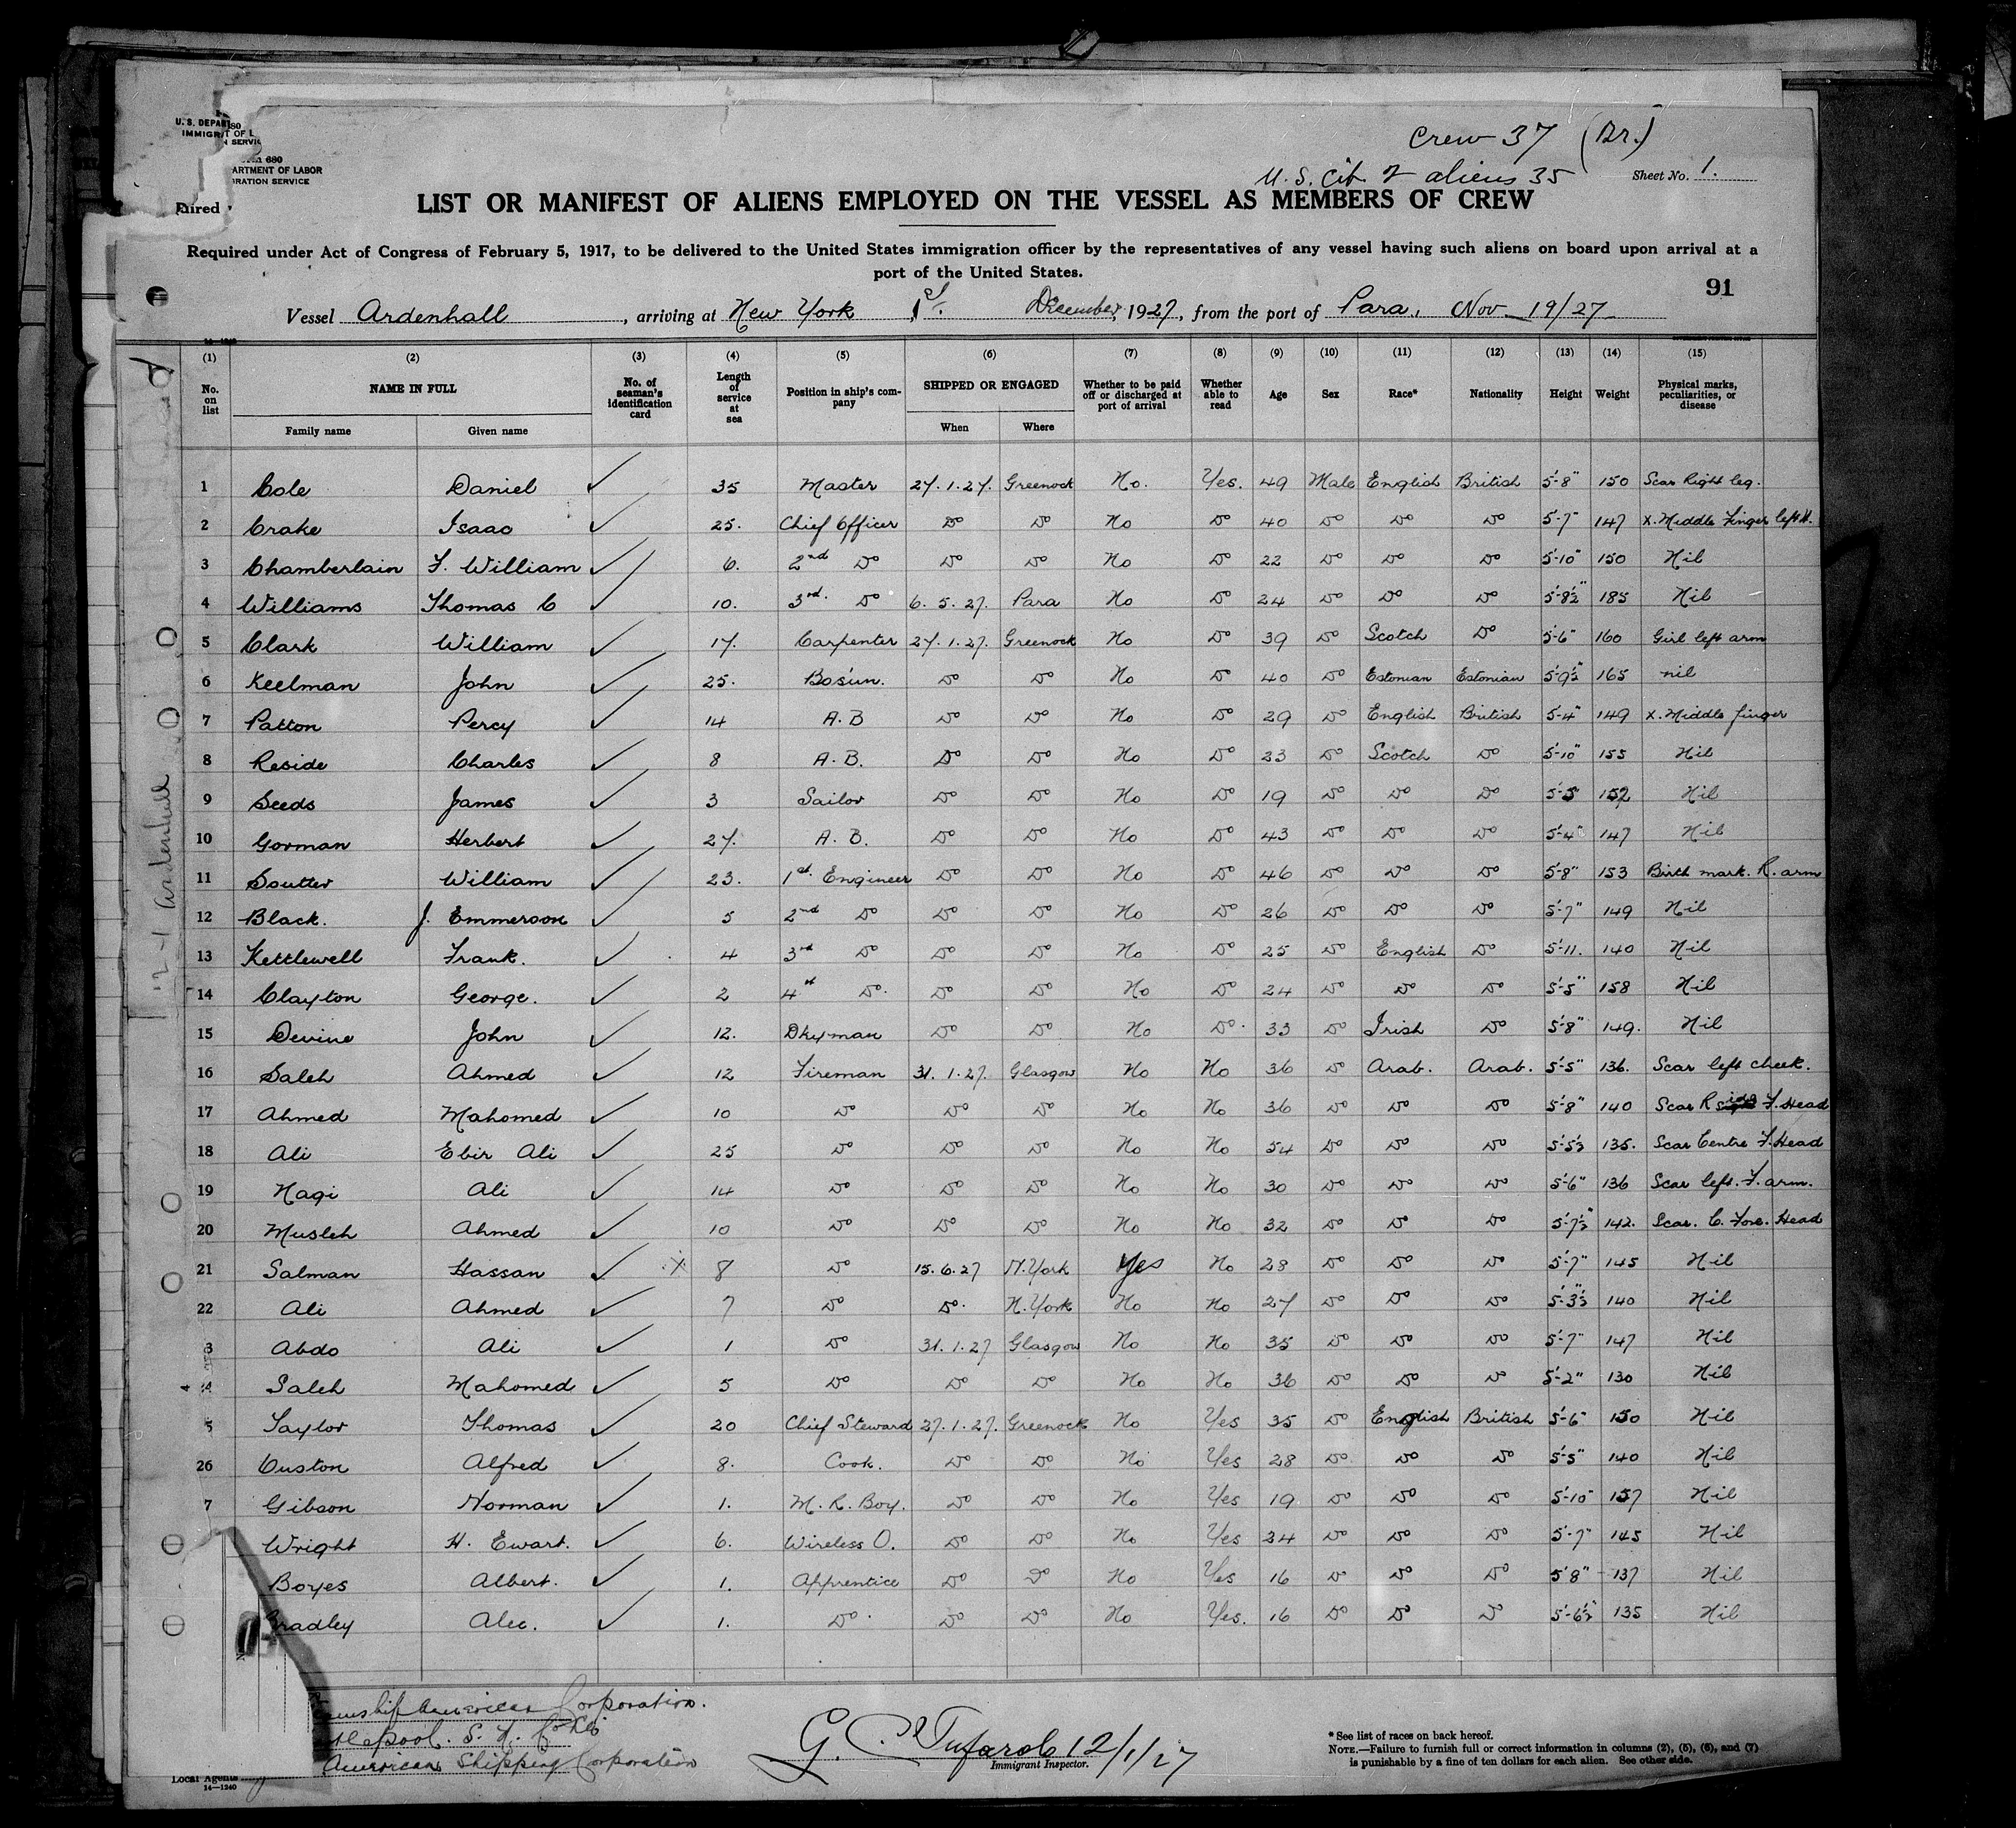 Crew 37 (Br.)
U.S. Cit. 2 aliens 35
Sheet No. 1.
U. S. DEPART
IMMIGR
680
ARTMENT OF LABOR
RATION SERVICE
LIST OR MANIFEST OF ALIENS EMPLOYED ON THE VESSEL AS MEMBERS OF CREW
Required under Act of Congress of February 5, 1917, to be delivered to the United States immigration officer by the representatives of any vessel having such aliens on board upon arrival at a
port of the United States.
91
Vessel Ardenhall, arriving at New York, 1st December, 1927, from the port of Para, Nov 19/27
(1) (2) (3) (4) (5) (6) (7) (8) (9) (10) (11) (12) (13) (14) (15)
No. on list NAME IN FULL No. of seaman's identification card Length of service at sea Position in ship's company SHIPPED OR ENGAGED Whether to be paid off or discharged at port of arrival Whether able to read Age Sex Race* Nationality Height Weight Physical marks, peculiarities, or disease
Family name Given name When Where
1 Cole Daniel ✓ 35 Master 27.1.27. Greenock No. Yes. 49 Male English British 5'-8" 150 Scar Right leg.
2 Crake Isaac ✓ 25. Chief Officer Do Do No Do 40 Do Do Do 5'-7" 147 X. Middle Finger left H.
3 Chamberlain F. William ✓ 6. 2nd Do Do Do No Do 22 Do Do Do 5'-10" 150 Nil
4 Williams Thomas C ✓ 10. 3rd. Do 6.5.27. Para No Do 24 Do Do Do 5'-8½" 185 Nil
5 Clark William ✓ 17. Carpenter 27.1.27. Greenock No Do 39 Do Scotch Do 5'-6" 160 Girl left arm
6 Keelman John ✓ 25. Bosun. Do Do No Do 40 Do Estonian Estonian 5'-9½" 165 nil
7 Patton Percy ✓ 14 A.B Do Do No Do 29 Do English British 5'-4" 149 X. Middle finger
8 Reside Charles ✓ 8 A.B. Do Do No Do 23 Do Scotch Do 5'-10" 155 Nil
9 Seeds James ✓ 3 Sailor Do Do No Do 19 Do Do Do 5'-5 152 Nil
10 Gorman Herbert ✓ 27. A.B. Do Do No Do 43 Do Do Do 5'-4" 147 Nil
11 Soutter William ✓ 23. 1st. Engineer Do Do No Do 46 Do Do Do 5'-8" 153 Birth mark. R. arm
12 Black. J. Emmerson ✓ 5 2nd Do Do Do No Do 26 Do Do Do 5'-7" 149 Nil
13 Kettlewell Frank. ✓ 4 3rd Do Do Do No Do 25 Do English Do 5'-11. 140 Nil
14 Clayton George. ✓ 2 4th Do. Do Do No Do 24 Do Do Do 5'-5" 158 Nil
15 Devine John ✓ 12. Dkyman Do Do No Do. 33 Do Irish Do 5'-8" 149. Nil
16 Saleh Ahmed ✓ 12 Fireman 31.1.27. Glasgow No No 36 Do Arab. Arab. 5'-5" 136. Scar left cheek.
17 Ahmed Mahomed ✓ 10 Do Do Do No No 36 Do Do Do 5'-8" 140 Scar R side F. Head
18 Ali Ebir Ali ✓ 25 Do Do Do No No 54 Do Do Do 5'-5½ 135. Scar Centre F. Head
19 Nagi Ali ✓ 14 Do Do Do No No 30 Do Do Do 5'-6" 136 Scar left. F. arm.
20 Musleh Ahmed ✓ 10 Do Do Do No No 32 Do Do Do 5'-7½" 142. Scar. C. Fore. Head
21 Salman Hassan ✓ X 8 Do 15.6.27 N. York Yes No 28 Do Do Do 5'-7" 145 Nil
22 Ali Ahmed ✓ 7 Do Do. N. York No No 27 Do Do Do 5'-3½" 140 Nil
3 Abdo Ali ✓ 1 Do 31.1.27 Glasgow No No 35 Do Do Do 5'-7" 147 Nil
4 Saleh Mahomed ✓ 5 Do Do Do No No 36 Do Do Do 5'-2" 130 Nil
5 Taylor Thomas ✓ 20 Chief Steward 27.1.27. Greenock No Yes 35 Do English British 5'-6" 150 Nil
26 Custon Alfred ✓ 8. Cook. Do Do No Yes 28 Do Do Do 5'-5" 140 Nil
7 Gibson Norman ✓ 1. M. R. Boy. Do Do No Yes 19 Do Do Do 5'-10" 157 Nil
Wright H. Ewart. ✓ 6. Wireless O. Do Do No Yes 24 Do Do Do 5'-7" 145 Nil
Boyes Albert. ✓ 1. Apprentice Do Do No Yes 16 Do Do Do 5'8" 137 Nil
Bradley Alec. ✓ 1. Do. Do Do No Yes. 16 Do Do Do 5'-6½" 135 Nil
12-1 Ardenhall
American Corporation.
American Shipping Corporation
Local Agents
14—1240
G. C. Tufarolo 12/1/27
Immigrant Inspector.
* See list of races on back hereof.
NOTE.—Failure to furnish full or correct information in columns (2), (5), (6), and (7)
is punishable by a fine of ten dollars for each alien. See other side.